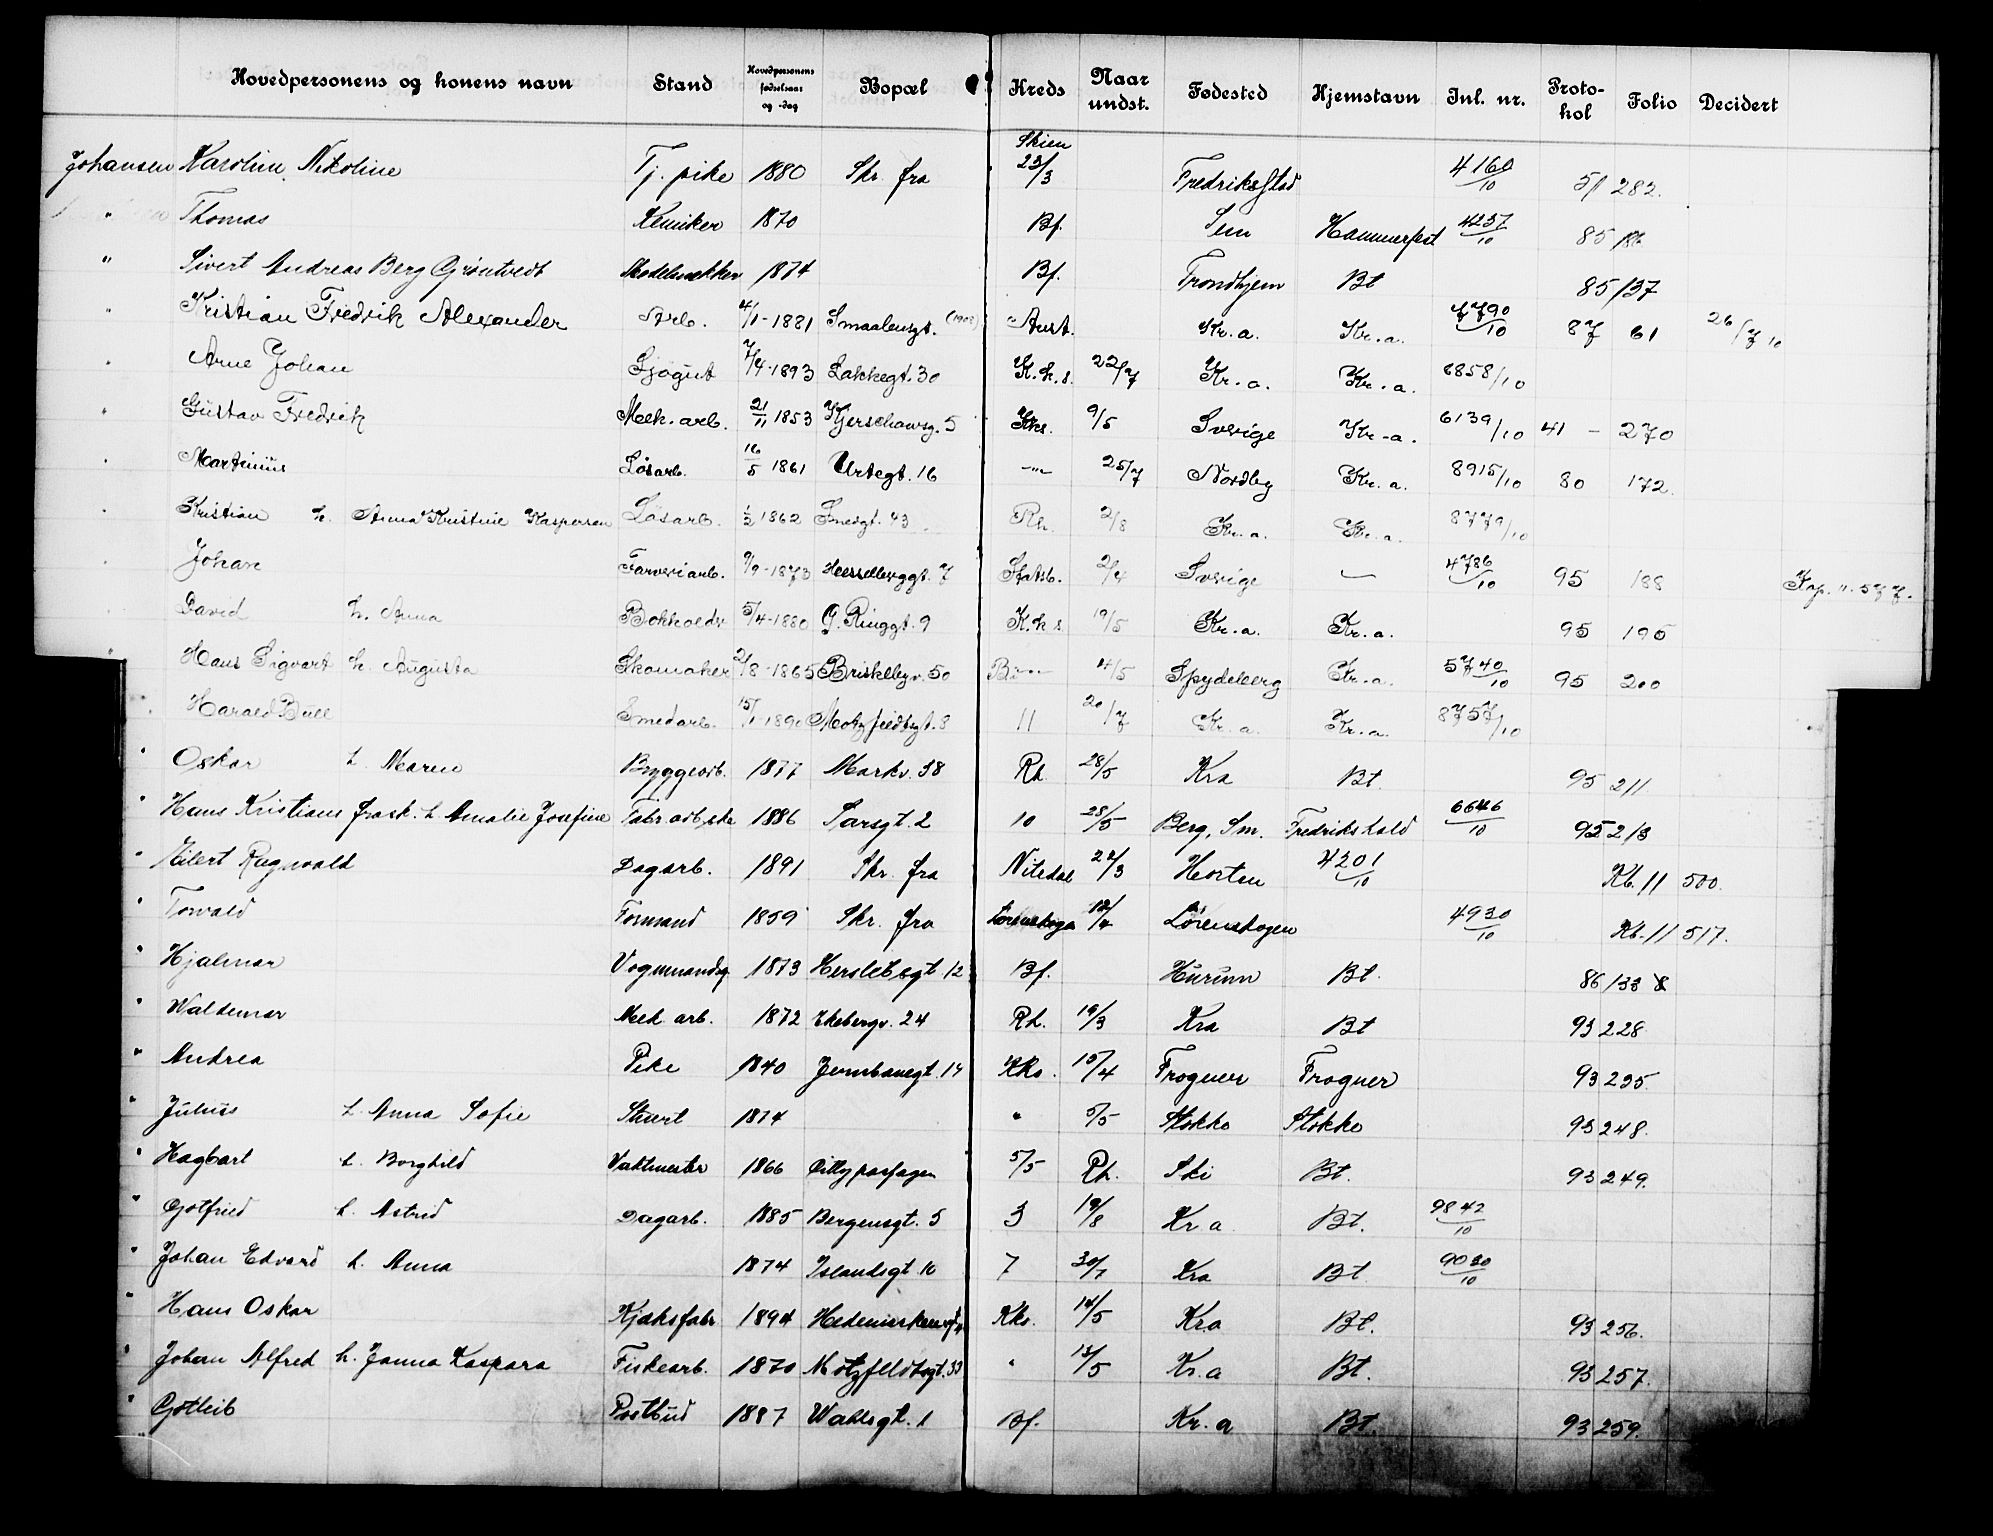 Hovedpersonens og konens navn Stand Hovedpersonens fødselsaar og -dag Bopæl Kreds Naar undst. Fødested Hjemstavn Inl. nr. Proto- kol Folio Decidert
Johansen Karoline Nikoline Tj. pike 1880 Skr. fra Skien 23/3 Fredriksstad 4160/10 51 282.
" Thomas Kemiker 1870 Bf. Sem Hammerfest 4237/10 85
" Sivert Andreas Berg Grøntvedt Modelsnekker 1874 Bf. Trondhjem Bt 85 137
" Kristian Fredrik Alexander Arb. 4/1-1881 Smaalensgt. (1908) Aust. Kr.a. Kr.a. 7790/10 87 61 26/7 10
" Arne Johan Sjøgut 7/4-1893 Lakkegt. 30 K.k.s. 22/7 Kr.a. Kr.a. 8858/10
" Gustav Fredrik Mek. arb. 21/11 1853 Kjerschowsg. 5 Kks. 9/5 Sverige Kr-a. 6139/10 41 - 270
" Martinius Løsarb. 16/5 1861 Urtegt. 16 -"- 25/7 Nordby Kr.a. 8915/10 80 172.
" Kristian h. Anna Kristine Kaspersen Løsarb. 1/2 1862 Smedgt. 43 Rh. 2/8 Kr.a. Kr.a. 8779/10
" Johan Farveriarb. 9/9-1873 Hesselberggt. 7 2/4 Sverige — 4786/10 95 188 Kop. 11. 577.
" David h. Anna Bokholder 5/4-1880 G. Ringgt. 9 K.k.s. 19/5 Kr.a. Kr.a. 95 195
" Hans Sigvart h. Augusta Skomaker 2/8-1865 Briskebyv. 50 4/5 Spydeberg Kr.a. 5740/10 95 200
" Harald Bull Smedarb. 15/1-1890 Motzfeldtsgt. 8 11 20/7 Kr.a. Kr.a. 8757/10
" Oskar h. Maren Byggearb. 1877 Markv. 38 Rh 28/5 Kra Bt. 95 211
" Hans Kristians frask. h. Amalie Josefine Fabr arbske 1886 Sarsgt. 2 10 28/5 Berg, Sm. Fredrikshald 6646/10 95 213
" Eilert Ragnvald Dagarb. 1891 Skr. fra Nitedal 22/3 Horten 4201/10 Kb. 11 500.
" Torvald Formand 1859 Skr. fra Lørenskogen 12/4 Lørenskogen 4930/10 Kb. 11 517.
" Hjalmar Vognmandsg 1873 Herslebsgt. 12 Bf. Hurum Bt. 86 133
" Waldemar Mek. arb. 1872 Ekebergv. 24 Rh. 19/3 Kra Bt 93 228
" Andrea Pike 1840 Jernbanegt. 14 Kks. 15/4 Frogner Frogner 93 235.
" Julius h. Anna Sofie Stuert 1874 " 5/5 Stokke Stokke 93 248.
" Hagbart h. Borghild Vaktmester 1866 Citypassagen 5/5 Rh. Ski Bt. 93 249.
" Gotfried h. Astrid Dagarb. 1885 Bergensgt. 5 3 19/8 Kr.a. Bt. 9842/10
" Johan Edvard h. Anna 1874 Islandsgt. 10 7 30/7 Kra Bt 9030/10
" Hans Oskar Kjeksfabr 1894 Kks. 14/5 Kra Bt. 93 256.
" Johan Alfred h. Janna Kaspara Fiskearb. 1870 Motzfeldtsgt. 33 " 13/5 Kr.a Bt. 93 257.
" Gotleib Postbud 1887 Wahlsgt. 1 Bf. Kr.a Bt. 93 259.